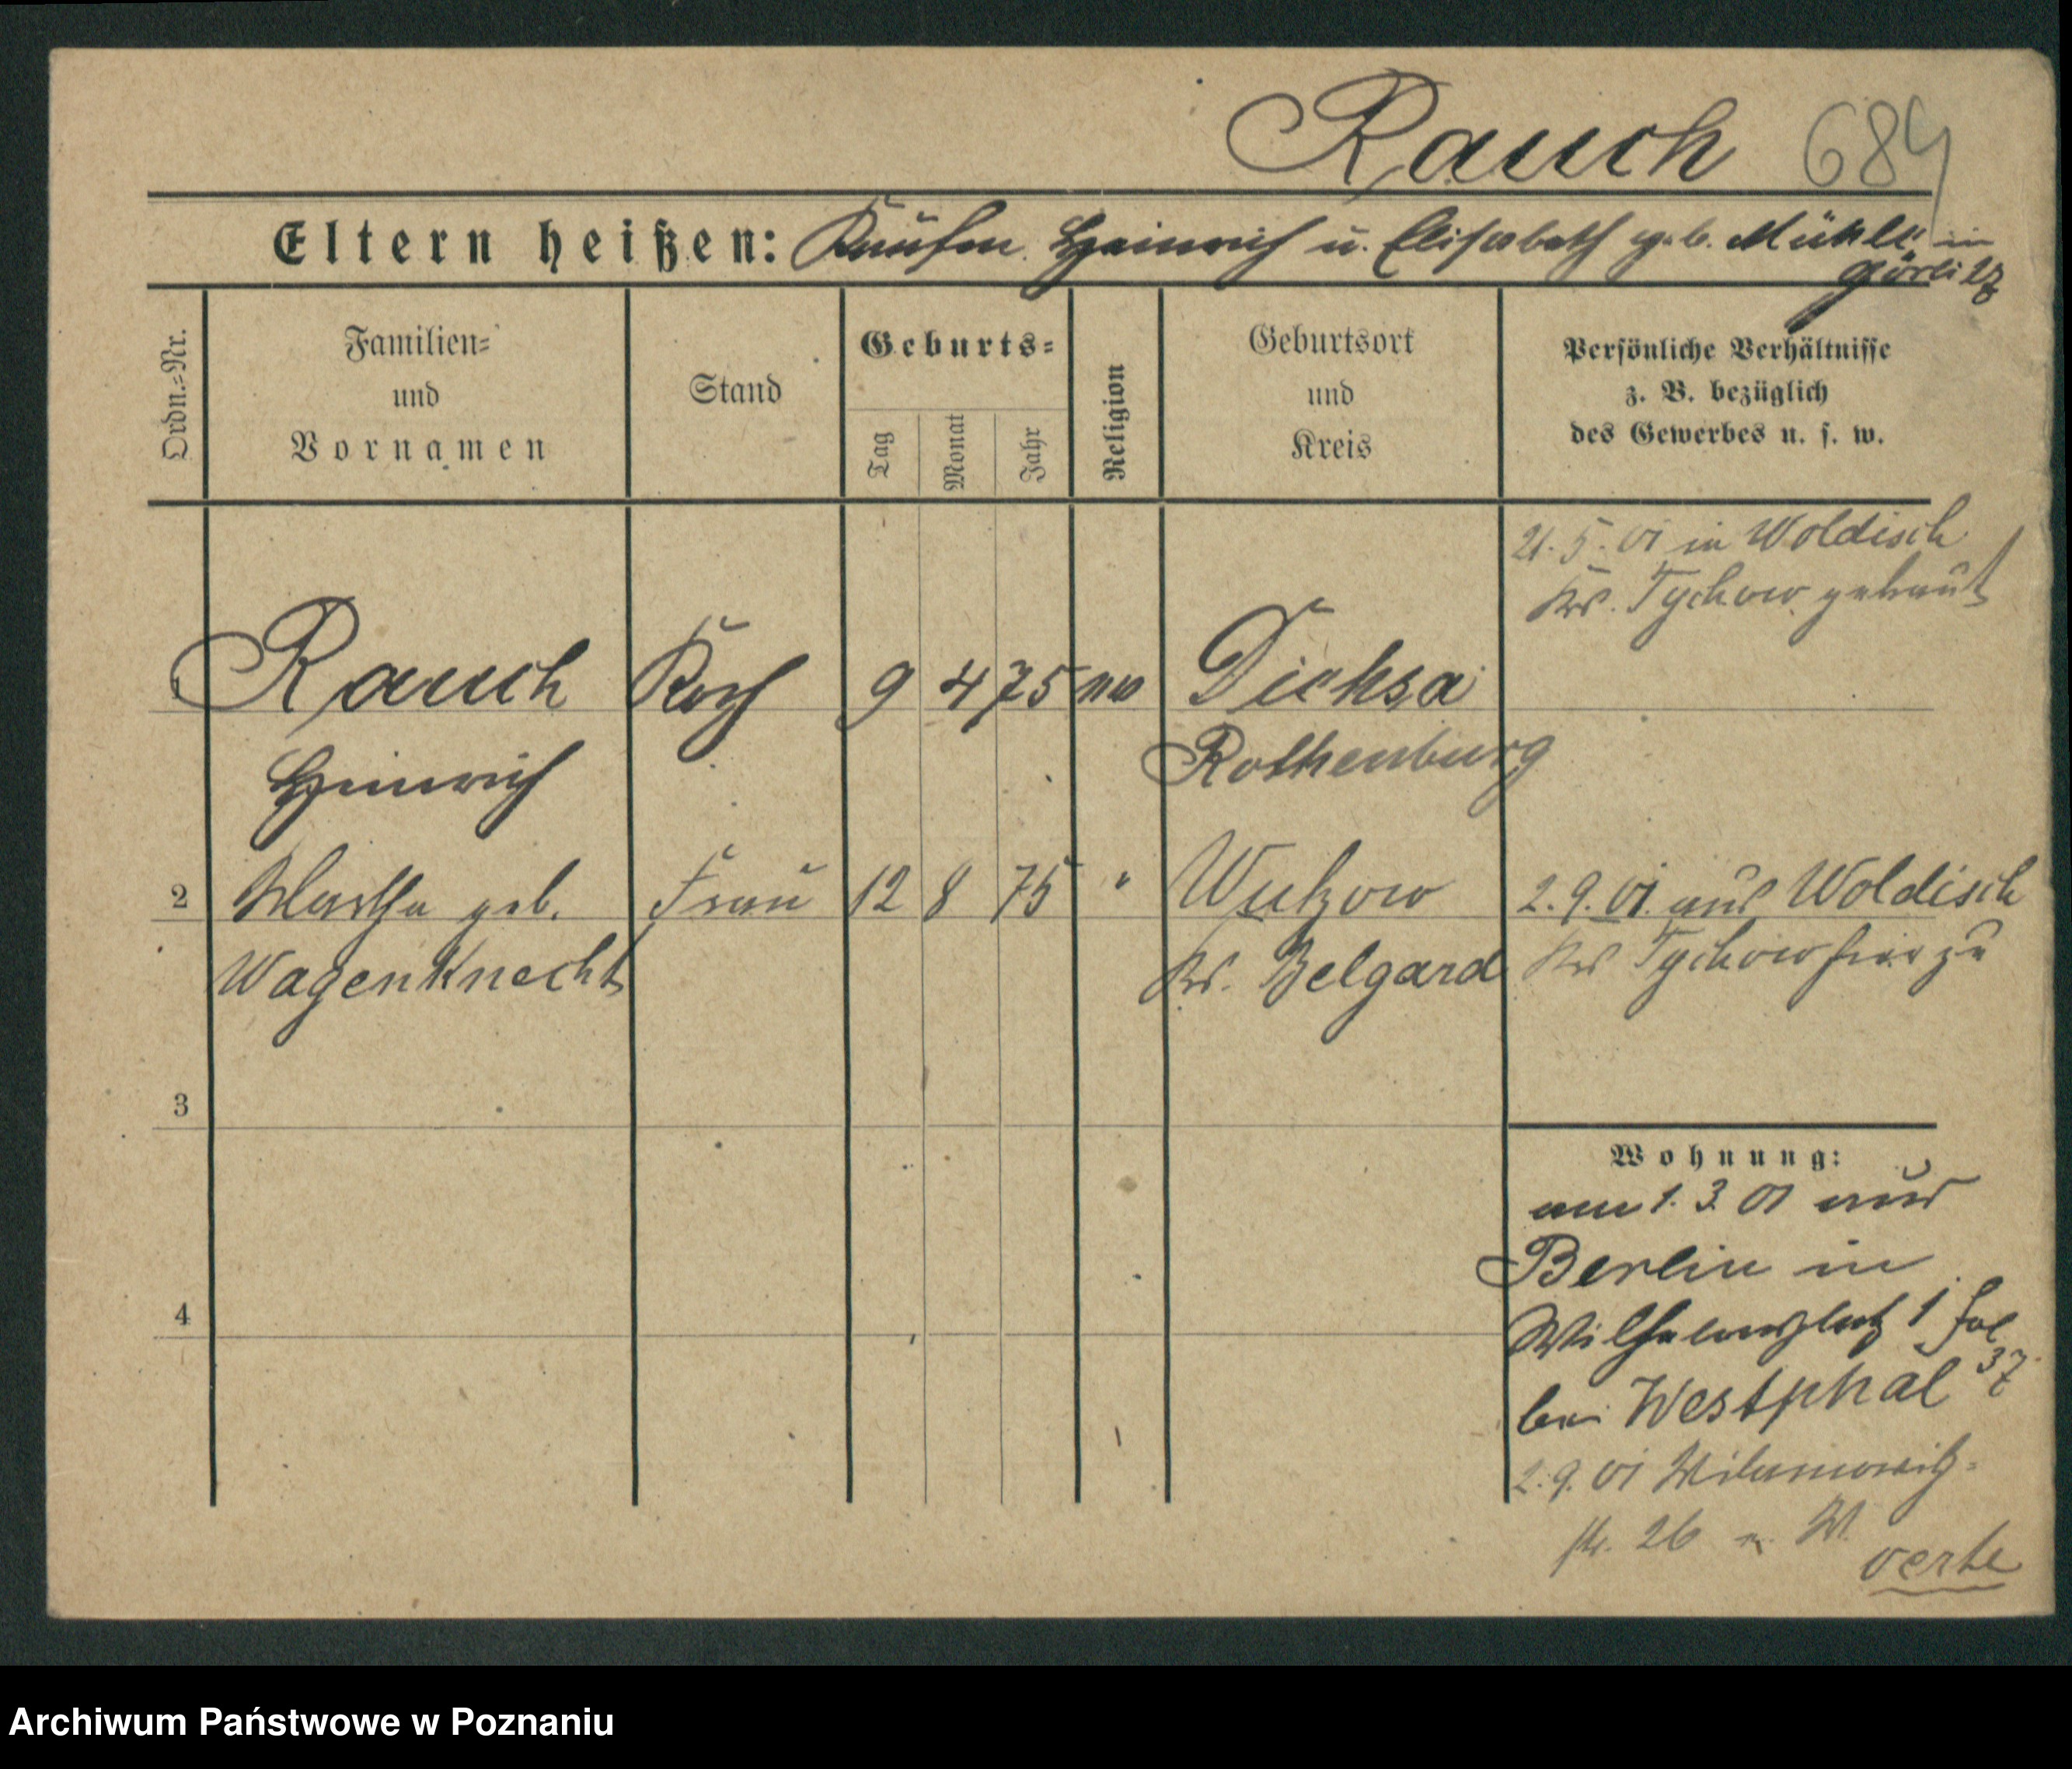 Rauch 684
Eltern heißen: Kaufm. Heinrich u. Elisabeth geb. Mühle in
Görlitz
Ordn.=Nr.
Familien=
und
Vornamen
Stand
Geburts=
Tag
Monat
Jahr
Religion
Geburtsort
und
Kreis
Persönliche Verhältnisse
z. B. bezüglich
des Gewerbes u. s. w.
21. 5. 01 in Woldisch
Krs. Tychow getraut
1 Rauch Koch 9 4 75 ev Diehsa
Heinrich Rothenburg
2 Martha geb. Frau 12 8 75 " Wutzow 2. 9. 01. aus Woldisch
Wagenknecht Kr. Belgard Krs Tychow hierzu
3
4
Wohnung:
am 1. 3. 01 aus
Berlin in
Wilhelmsplatz 1
bei Westphal 37
2. 9. 01
26 W.
verte
Archiwum Państwowe w Poznaniu